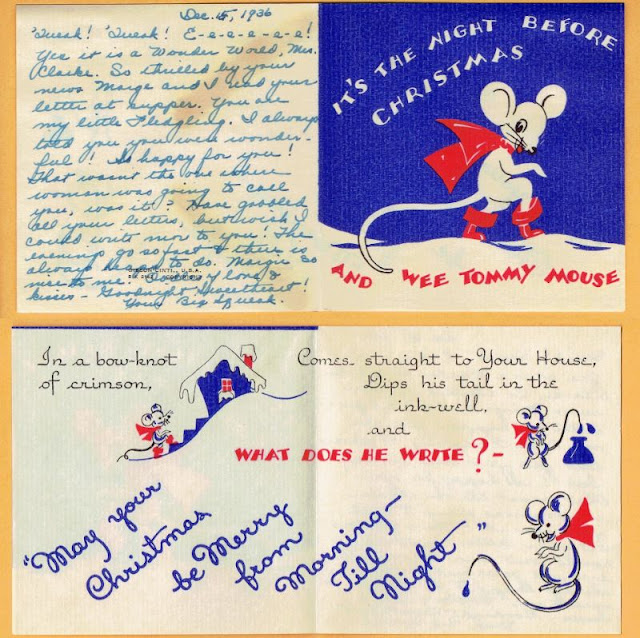 Dec. 15, 1936
'Tueak! 'Tueak! E-e-e-e-e-e!
Yes it is a Wonder World, Mrs.
Clarke. So thrilled by your
news Marge and I read your
letter at supper. You are
my little Fledgling. I always
told you you were wonder-
ful! So happy for you!
That wasnt the one where
woman was going to call
you, was it? Have gobbled
all your letters, but wish I
could write mor to you! The
evenings go so fast & there is
always to do. Margie so
nice to me. long &
kisses - Goodnight Sweetheart!
Your Big Squeak.
GIBSON CINTI., U.S.A.
IT'S THE NIGHT BEFORE
CHRISTMAS
AND WEE TOMMY MOUSE
In a bow-knot
of crimson,
Comes straight to Your House,
Dips his tail in the
ink-well,
and
WHAT DOES HE WRITE?-
"May your
Christmas
be Merry
from
Morning-
Till
Night"